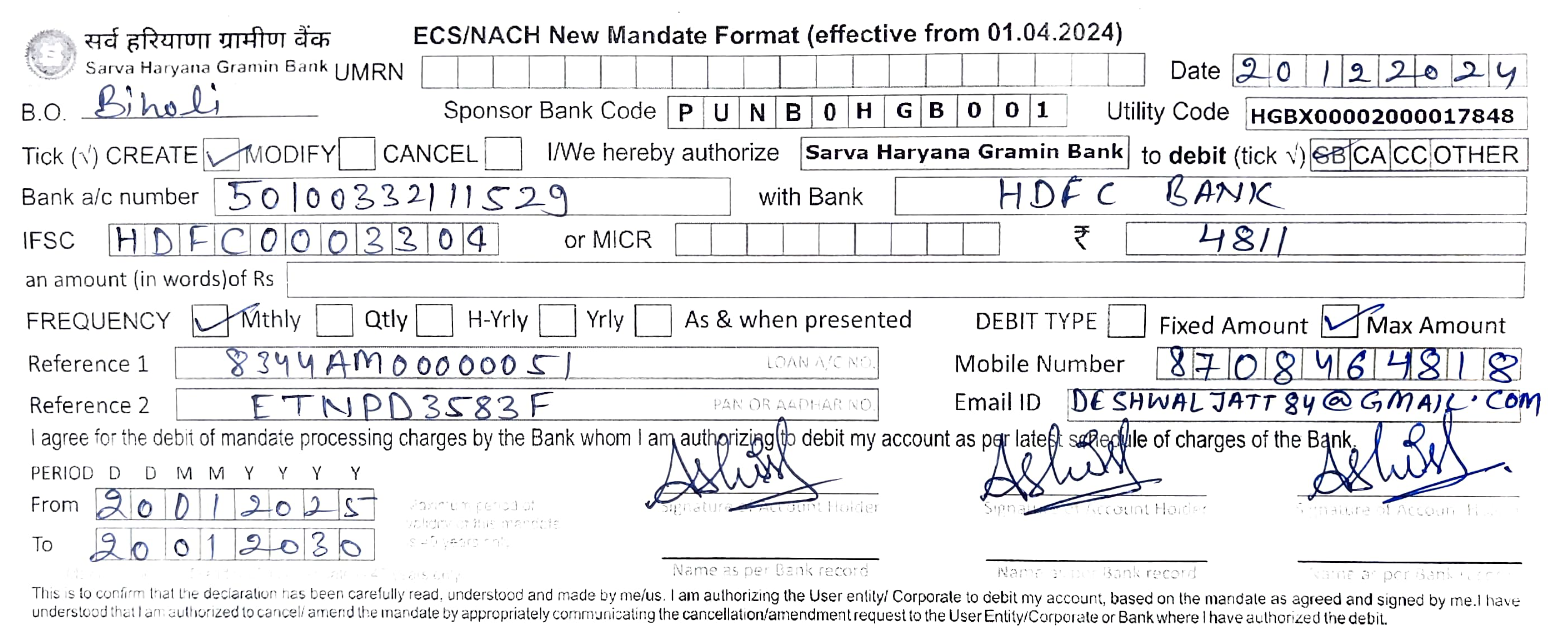 सर्व हरियाणा ग्रामीण बैंक ECS/NACH New Mandate Format (effective from 01.04.2024)
Sarva Haryana Gramin Bank UMRN Date 20122024
B.O. Biholi Sponsor Bank Code PUNB0HGB001 Utility Code HGBX00002000017848
Tick (√) CREATE ✓ MODIFY CANCEL I/We hereby authorize Sarva Haryana Gramin Bank to debit (tick √) SB CA CC OTHER
Bank a/c number 50100332111529 with Bank HDFC BANK
IFSC HDFC0003304 or MICR ₹ 4811
an amount (in words)of Rs
FREQUENCY ✓ Mthly Qtly H-Yrly Yrly As & when presented DEBIT TYPE Fixed Amount ✓ Max Amount
Reference 1 8344AM00000051 LOAN A/C NO. Mobile Number 8708464818
Reference 2 ETNPD3583F PAN OR AADHAR NO. Email ID DESHWALJATT84@GMAIL.COM
I agree for the debit of mandate processing charges by the Bank whom I am authorizing to debit my account as per latest schedule of charges of the Bank.
PERIOD D D M M Y Y Y Y
From 20012025 Signature of Account Holder Signature of Account Holder Signature of Account Holder
To 20012030
Name as per Bank record Name as per Bank record Name as per Bank record
This is to confirm that the declaration has been carefully read, understood and made by me/us. I am authorizing the User entity/ Corporate to debit my account, based on the mandate as agreed and signed by me.I have
understood that I am authorized to cancel/ amend the mandate by appropriately communicating the cancellation/amendment request to the User Entity/Corporate or Bank where I have authorized the debit.